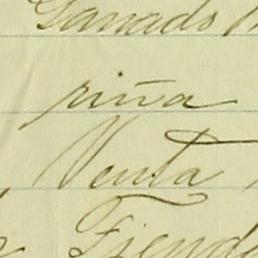 Ganado
riña
Venta
Tienda